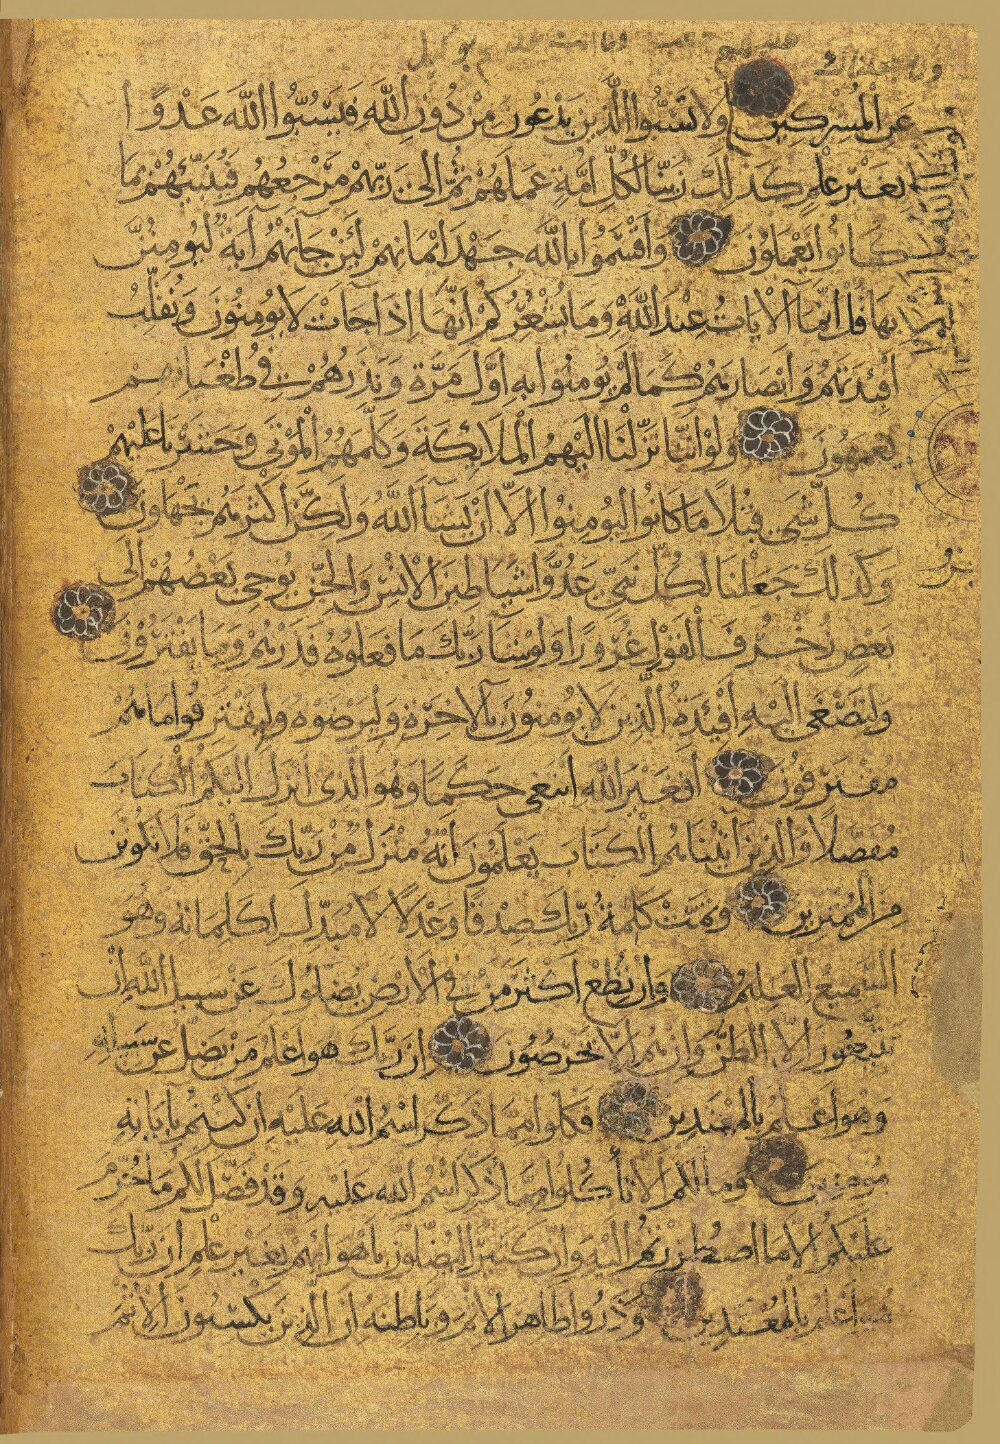 وما جعلناك عليهم حفيظا وما انت عليهم بوكيل
ولو شا الله ما اشركوا
عن الْمُشْركين وَلا تَسُبُّوا الَّذين يَدْعُون مِنْ دُونِ اللَّهِ فَيَسُبُّوا اللَّهَ عَدْوًا
بِغَيْرِ عِلْمٍ كَذلِكَ زَيَّنَّا لِكُلِّ أُمَّةٍ عَمَلَهُمْ ثُمَّ إلى رَبِّهِمْ مَرْجِعُهُمْ فَيُنَبِّئُهُمْ بِمَا
كَانُوا يَعْمَلُونَ وَأَقْسَمُوا بِاللَّهِ جَهْدَ أيْمَانِهِمْ لَئِنْ جَآتْهُمْ آيَةٌ لَيُومِنُنَّ
بِهَا قُلْ إنَّمَا الْآيَاتُ عِنْدَ اللَّهِ وَمَا يُشْعِرُكُمْ أنَّهَا إذَا جَآتْ لَا يُومِنُونَ وَنُقَلِّبُ
أفْئِدَتَهُمْ وَأبْصَارَهُمْ كَمَا لَمْ يُومِنُوا بِهِ أوَّلَ مَرَّةٍ وَنَذَرُهُمْ فِي طُغْيَانِهِمْ
يَعْمَهُونَ وَلَوْ أنَّنَا نَزَّلْنَا إلَيْهِمُ الْمَلَائِكَةَ وَكَلَّمَهُمُ الْمَوْتَى وَحَشَرْنَا عَلَيْهِمْ
كُلَّ شَيءٍ قُبُلًا مَا كَانُوا لِيُومِنُوا إلَّا أنْ يَشَآ اللَّهُ وَلَكِنَّ أكْثَرَهُمْ يَجْهَلُونَ
وَكَذلِكَ جَعَلْنَا لِكُلِّ نَبِيٍّ عَدُوًّا شَيَاطِينَ الْإنْسِ وَالْجِنِّ يُوحِي بَعْضُهُمْ إلَى
بَعْضٍ زُخْرُفَ الْقَوْلِ غُرُورًا وَلَوْ شَآ رَبُّكَ مَا فَعَلُوهُ فَذَرْهُمْ وَمَا يَفْتَرُونَ
وَلِتَصْغَى إلَيْهِ أفْئِدَةُ الَّذِينَ لَا يُومِنُونَ بِالْآخِرَةِ وَلِيَرْضَوْهُ وَلِيَقْتَرِفُوا مَا هُمْ
مُقْتَرِفُونَ أفَغَيْرَ اللَّهِ أبْتَغِي حَكَمًا وَهُوَ الَّذِي أنْزَلَ إلَيْكُمُ الْكِتَابَ
مُفَصَّلًا وَالَّذِينَ آتَيْنَاهُمُ الْكِتَابَ يَعْلَمُونَ أنَّهُ مُنْزَلٌ مِنْ رَبِّكَ بِالْحَقِّ فَلَا تَكُونَنَّ
مِنَ الْمُمْتَرِينَ وَتَمَّتْ كَلِمَةُ رَبِّكَ صِدْقًا وَعَدْلًا لَا مُبَدِّلَ لِكَلِمَاتِهِ وَهُوَ
السَّمِيعُ الْعَلِيمُ وَإنْ تُطِعْ أكْثَرَ مَنْ فِي الْأرْضِ يُضِلُّوكَ عَنْ سَبِيلِ اللَّهِ إنْ
يَتَّبِعُونَ إلَّا الظَّنَّ وَإنْ هُمْ إلَّا يَخْرُصُونَ إنَّ رَبَّكَ هُوَ أعْلَمُ مَنْ يَضِلُّ عَنْ سَبِيلِهِ
وَهُوَ أعْلَمُ بِالْمُهْتَدِينَ فَكُلُوا مِمَّا ذُكِرَ اسْمُ اللَّهِ عَلَيْهِ إنْ كُنْتُمْ بِآيَاتِهِ
مُومِنِينَ وَمَا لَكُمْ ألَّا تَأْكُلُوا مِمَّا ذُكِرَ اسْمُ اللَّهِ عَلَيْهِ وَقَدْ فَصَّلَ لَكُمْ مَا حُرِّمَ
عَلَيْكُمْ إلَّا مَا اضْطُرِرْتُمْ إلَيْهِ وَإنَّ كَثِيرًا لَيُضِلُّونَ بِأهْوَائِهِمْ بِغَيْرِ عِلْمٍ إنَّ رَبَّكَ
هُوَ أعْلَمُ بِالْمُعْتَدِينَ وَذَرُوا ظَاهِرَ الْإثْمِ وَبَاطِنَهُ إنَّ الَّذِينَ يَكْسِبُونَ الْإثْمَ